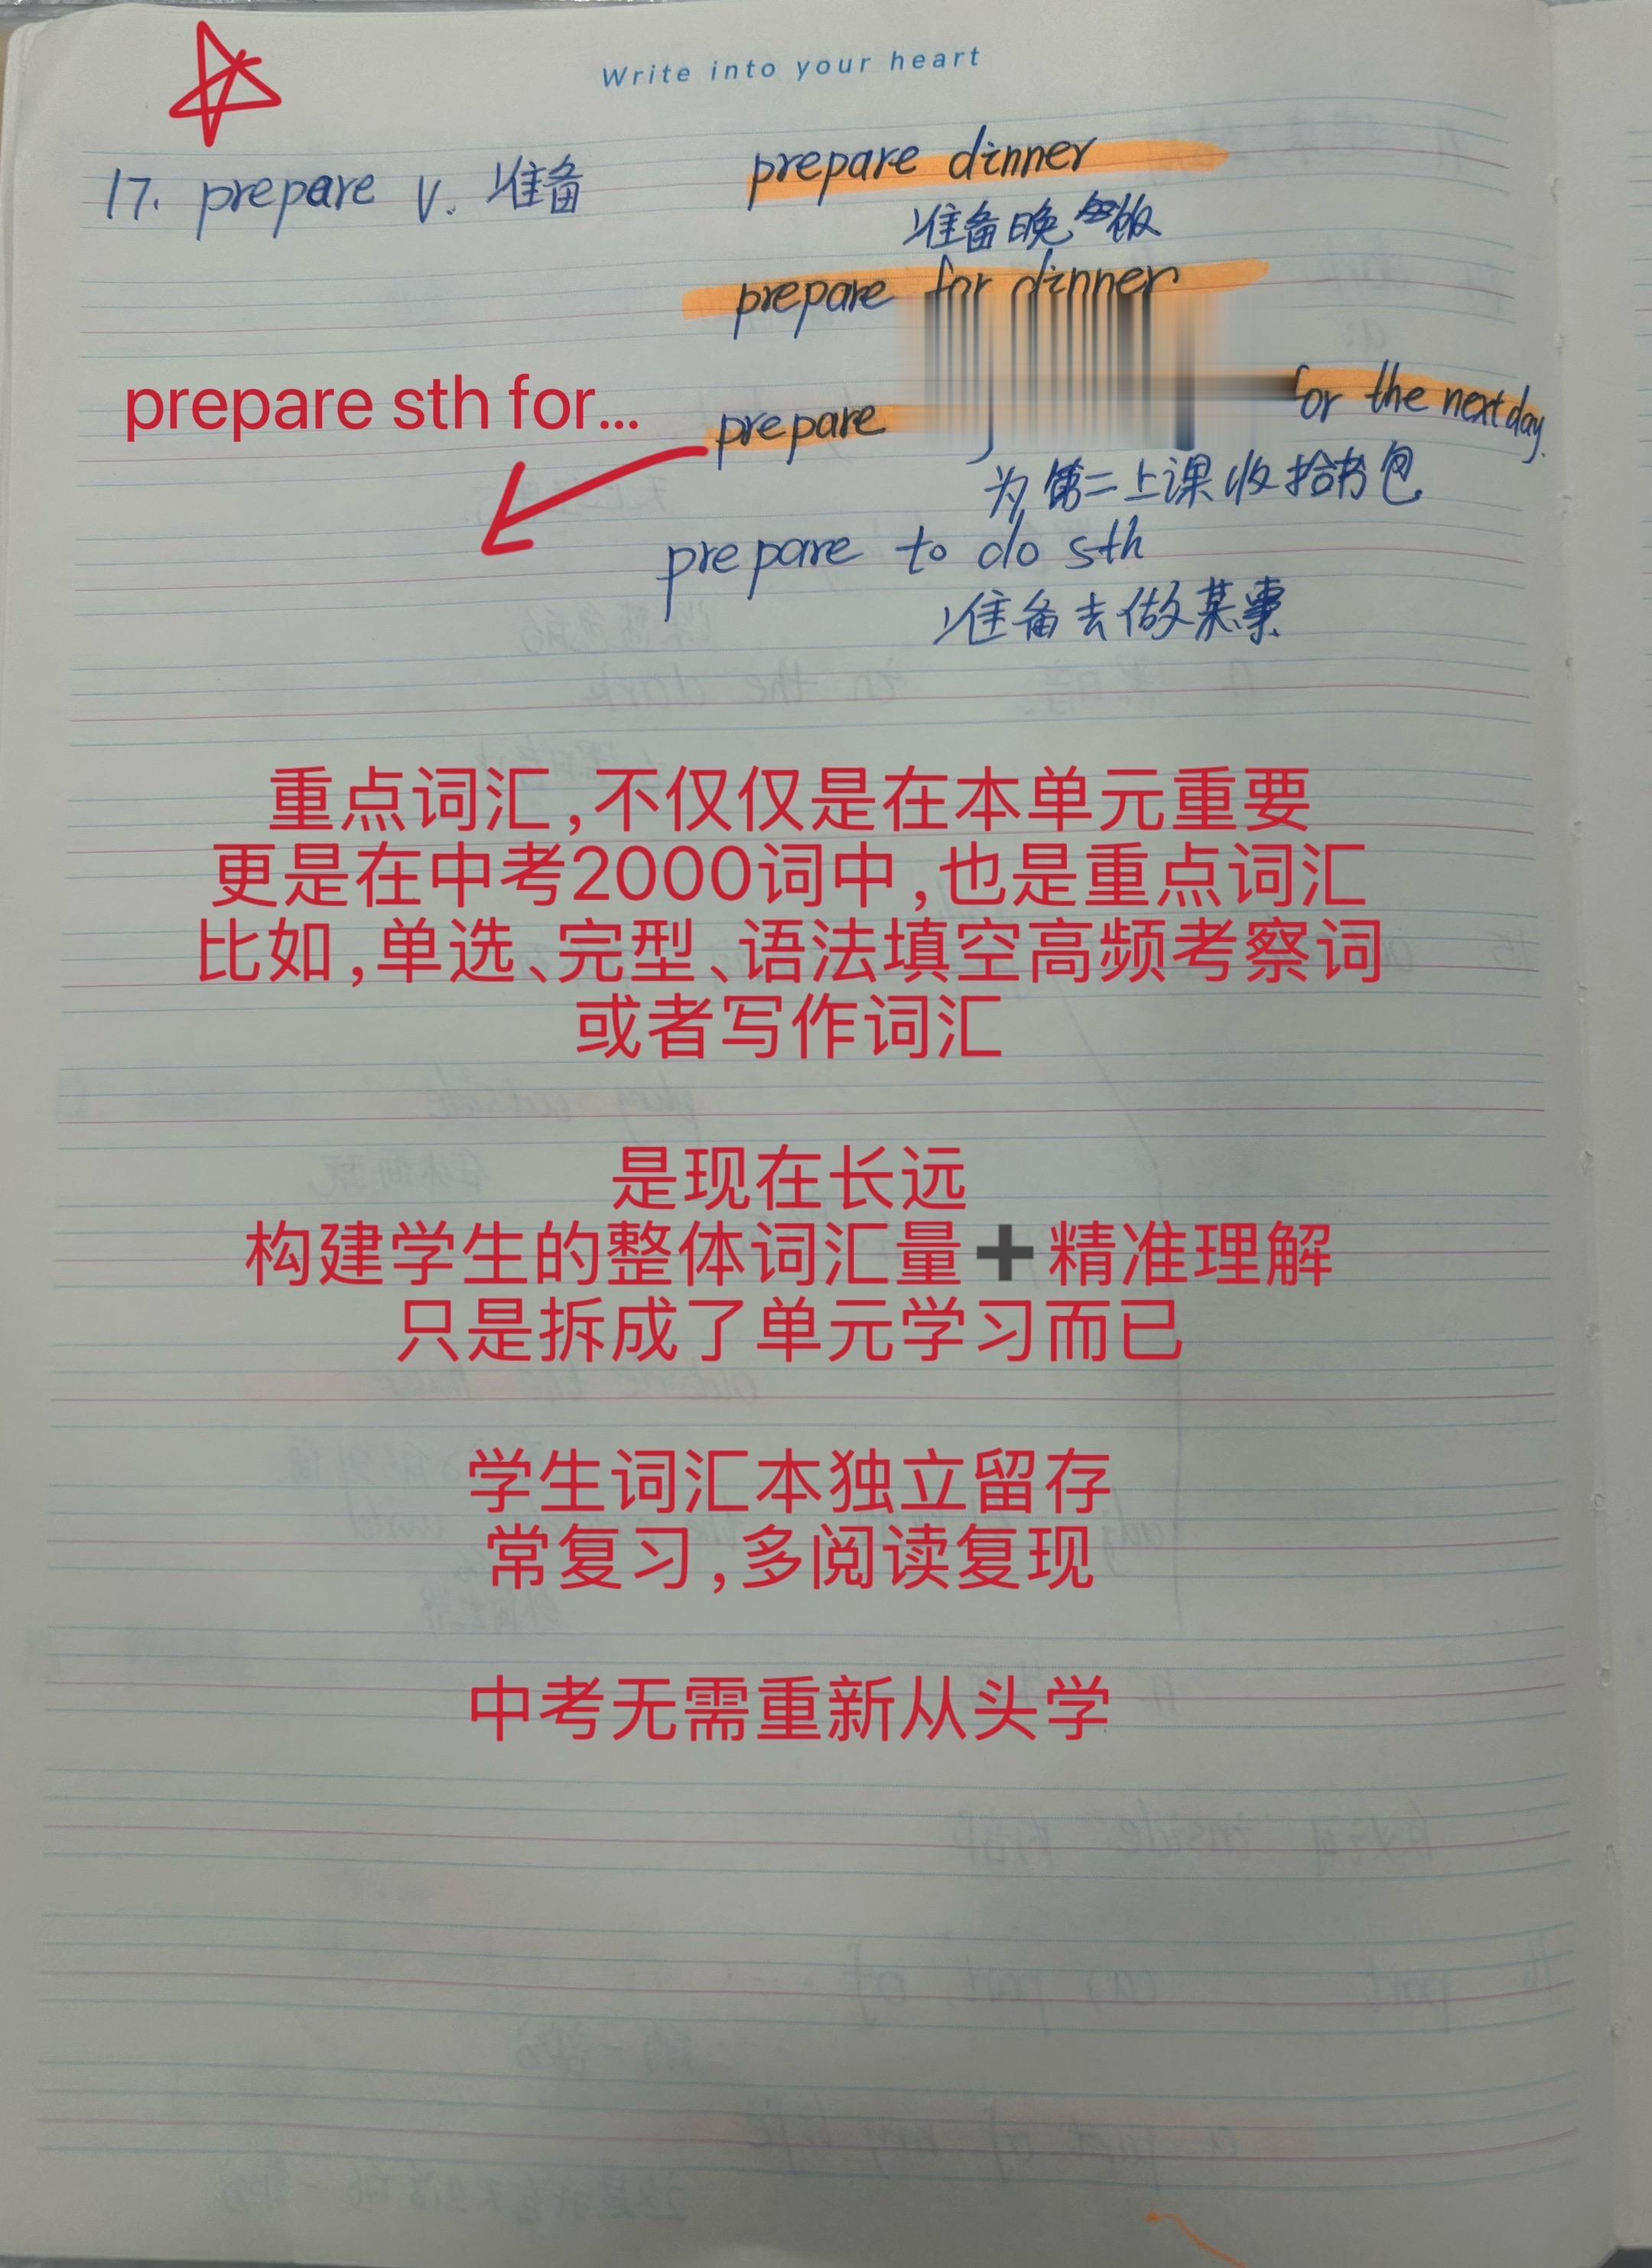 Write into your heart
17. prepare v. 准备
prepare dinner
准备晚饭
prepare for dinner
prepare for the next day.
为第二上课收拾书包
prepare to do sth
准备去做某事
prepare sth for...
重点词汇,不仅仅是在本单元重要
更是在中考2000词中,也是重点词汇
比如,单选、完型、语法填空高频考察词
或者写作词汇
是现在长远
构建学生的整体词汇量➕精准理解
只是拆成了单元学习而已
学生词汇本独立留存
常复习,多阅读复现
中考无需重新从头学